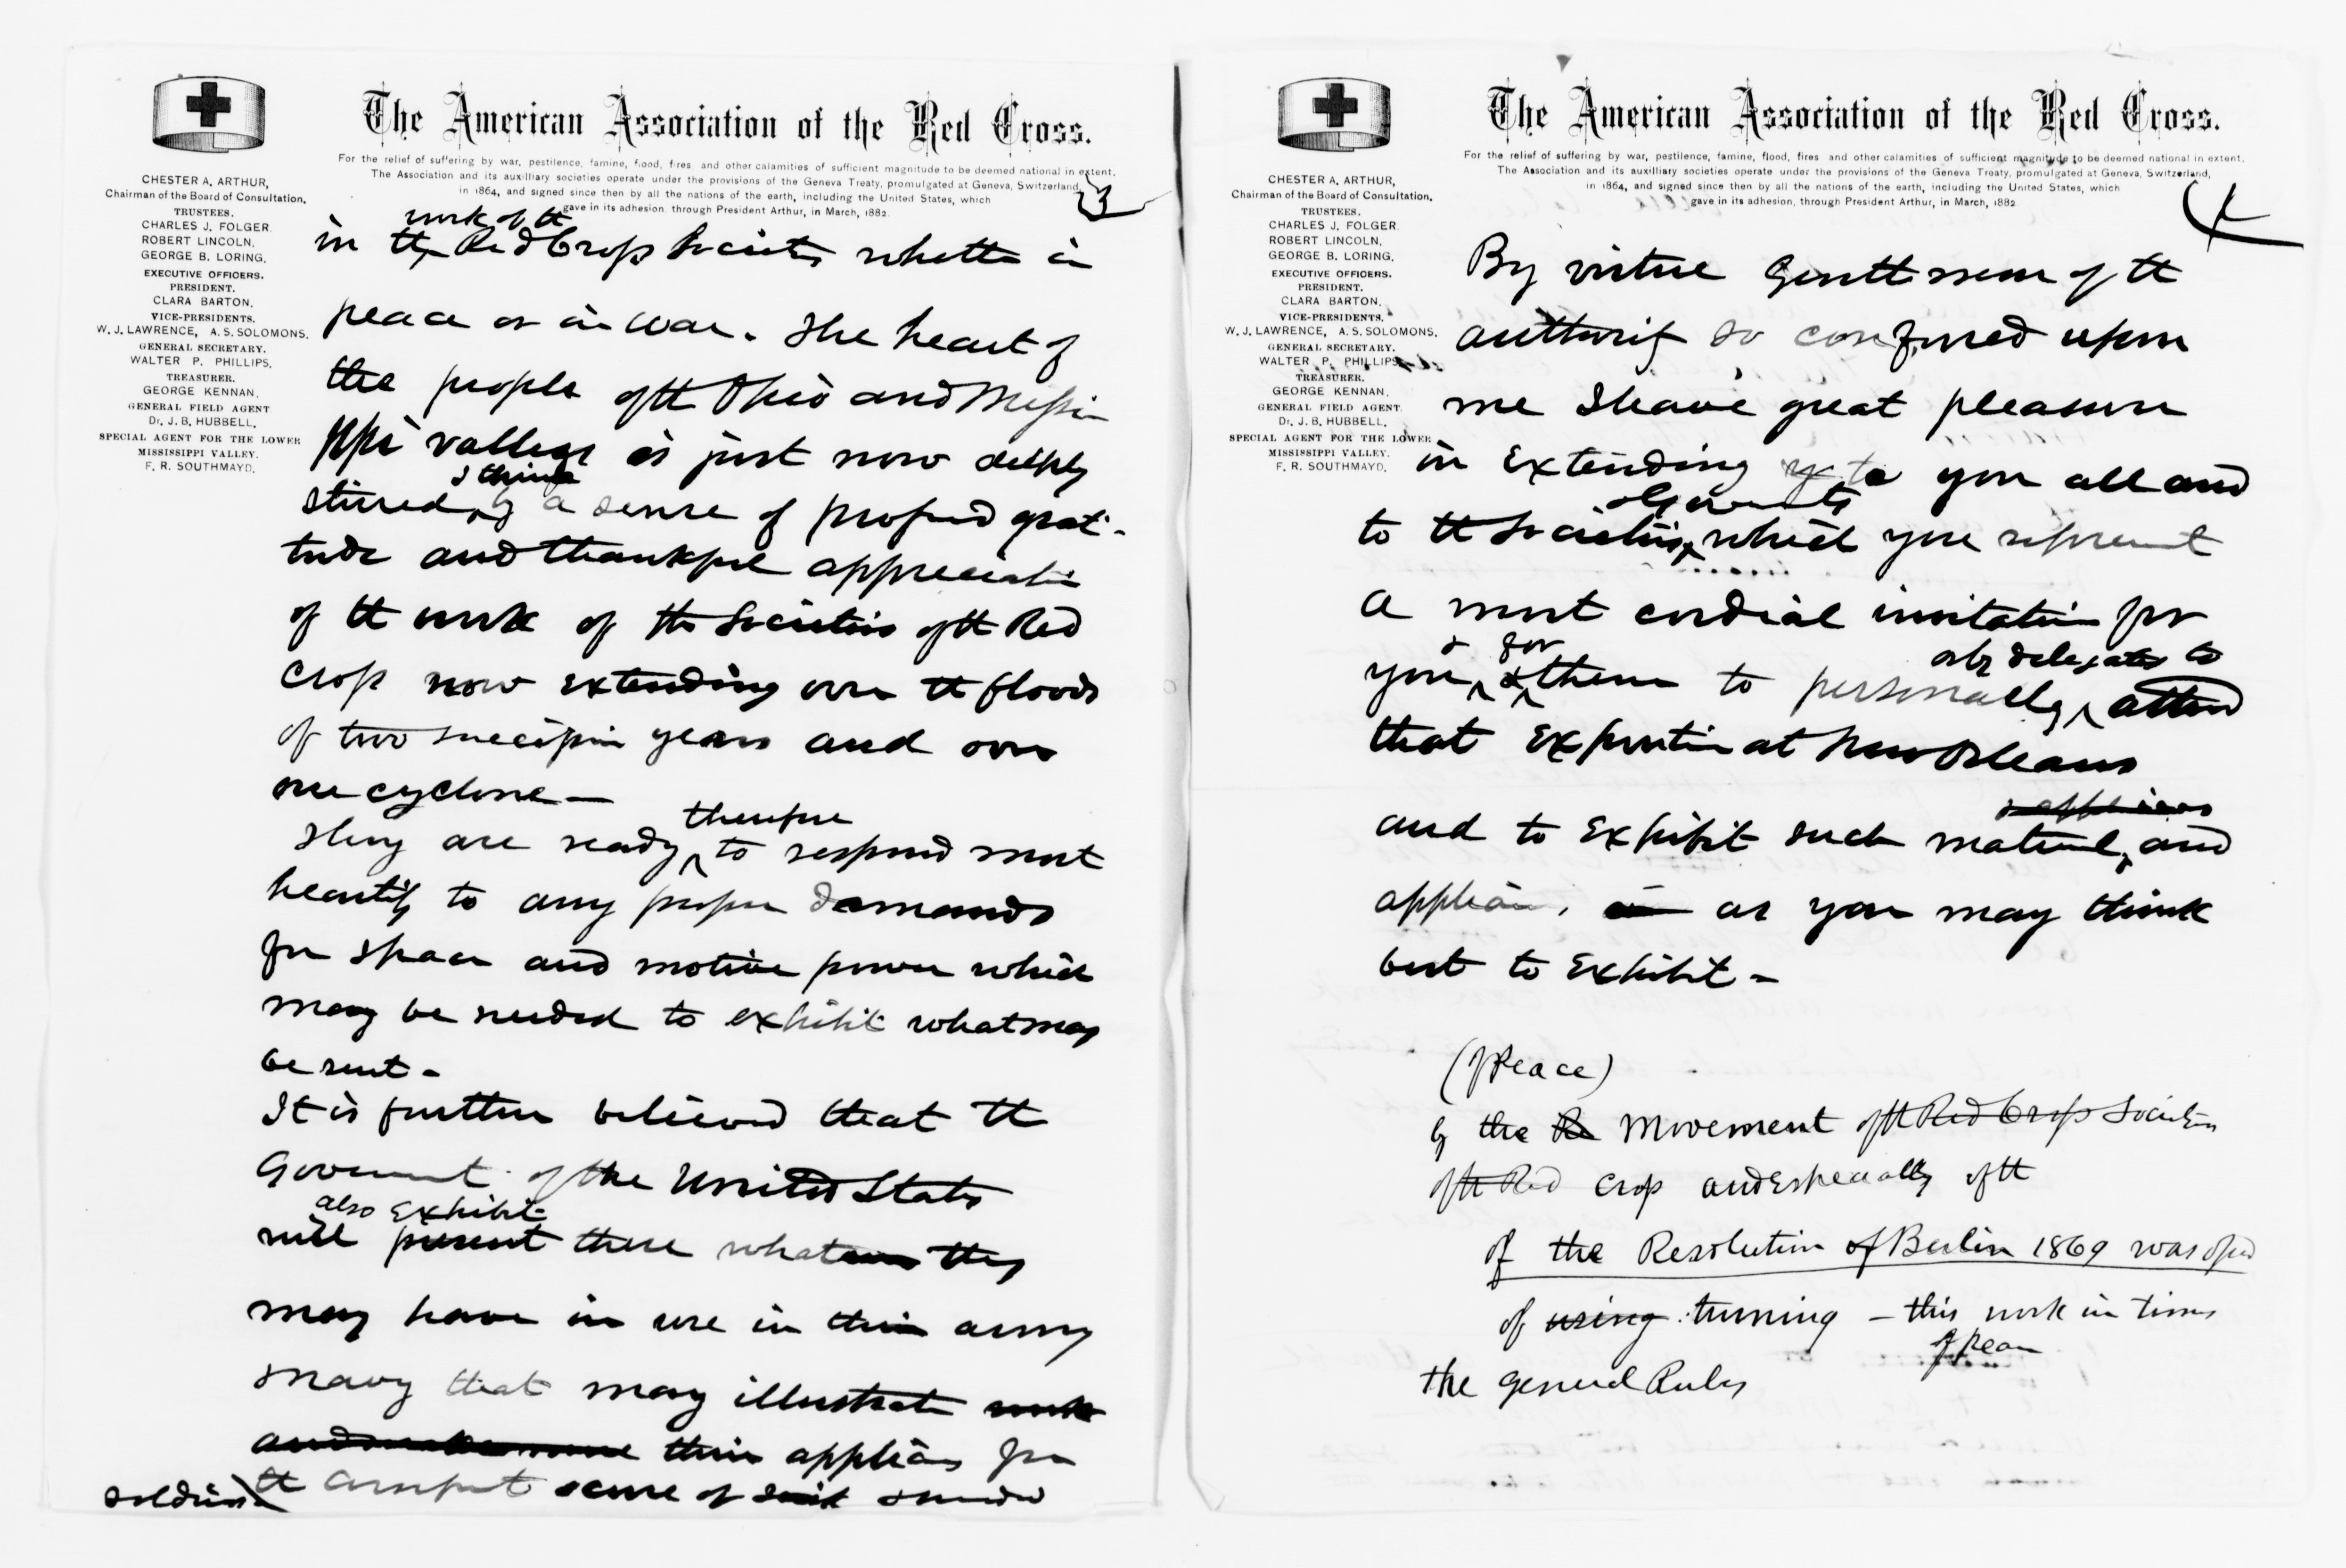 The American Association of the Red Cross.
For the relief of suffering by war, pestilence, famine, flood, fires and other calamities of sufficient magnitude to be deemed national in extent.
The Association and its auxilliary societies operate under the provisions of the Geneva Treaty, promulgated at Geneva, Switzerland,
in 1864, and signed since then by all the nations of the earth, including the United States, which
gave in its adhesion, through President Arthur, in March, 1882.
3
CHESTER A. ARTHUR,
Chairman of the Board of Consultation.
TRUSTEES.
CHARLES J. FOLGER.
ROBERT LINCOLN.
GEORGE B. LORING.
EXECUTIVE OFFICERS.
PRESIDENT.
CLARA BARTON.
VICE-PRESIDENTS.
W. J. LAWRENCE, A. S. SOLOMONS.
GENERAL SECRETARY.
WALTER P. PHILLIPS.
TREASURER.
GEORGE KENNAN.
GENERAL FIELD AGENT
Dr. J. B. HUBBELL.
SPECIAL AGENT FOR THE LOWER
MISSISSIPPI VALLEY.
F. R. SOUTHMAYD.
work of the
in the Red Cross Societies whether in
peace or in war. The heart of
the people of the Ohio and Missi
ppi valleys is just now deeply
I think
stirred by a sense of profound grati-
tude and thankful appreciation
of the work of the Societies of the Red
Cross now extending over the floods
of two successive years and over
one cyclone —
therefore
They are ready to respond most
heartily to any proper demands
for space and motive power which
may be needed to exhibit what may
be sent -
It is further believed that the
Government of the United States
also exhibit
will present there whatever they
may have in use in their army
navy that may illustrate work
their appliances for
the comfort of
soldiers
The American Association of the Red Cross.
For the relief of suffering by war, pestilence, famine, flood, fires and other calamities of sufficient magnitude to be deemed national in extent.
The Association and its auxilliary societies operate under the provisions of the Geneva Treaty, promulgated at Geneva, Switzerland,
in 1864, and signed since then by all the nations of the earth, including the United States, which
gave in its adhesion, through President Arthur, in March, 1882
4
CHESTER A. ARTHUR,
Chairman of the Board of Consultation.
TRUSTEES.
CHARLES J. FOLGER.
ROBERT LINCOLN.
GEORGE B. LORING.
EXECUTIVE OFFICERS.
PRESIDENT.
CLARA BARTON.
VICE-PRESIDENTS.
W. J. LAWRENCE, A. S. SOLOMONS.
GENERAL SECRETARY.
WALTER P. PHILLIPS.
TREASURER.
GEORGE KENNAN.
GENERAL FIELD AGENT.
Dr. J. B. HUBBELL.
SPECIAL AGENT FOR THE LOWER
MISSISSIPPI VALLEY.
F. R. SOUTHMAYD.
By virtue Gentlemen of the
authority so conferred upon
me I have great pleasure
in extending to you all and
Governments
to the Societies which you represent
a most cordial invitation for
& for
you & them to personally attend
or by delegates to
that exposition at New Orleans
appliances
and to exhibit such material and
appliances as you may think
best to exhibit -
(of Peace)
by the Re movement of the Red Cross Societies
of the Red Cross and especially of the
of the Resolution of Berlin 1869 was
of using turning - this work in times
of peace
the general Rules